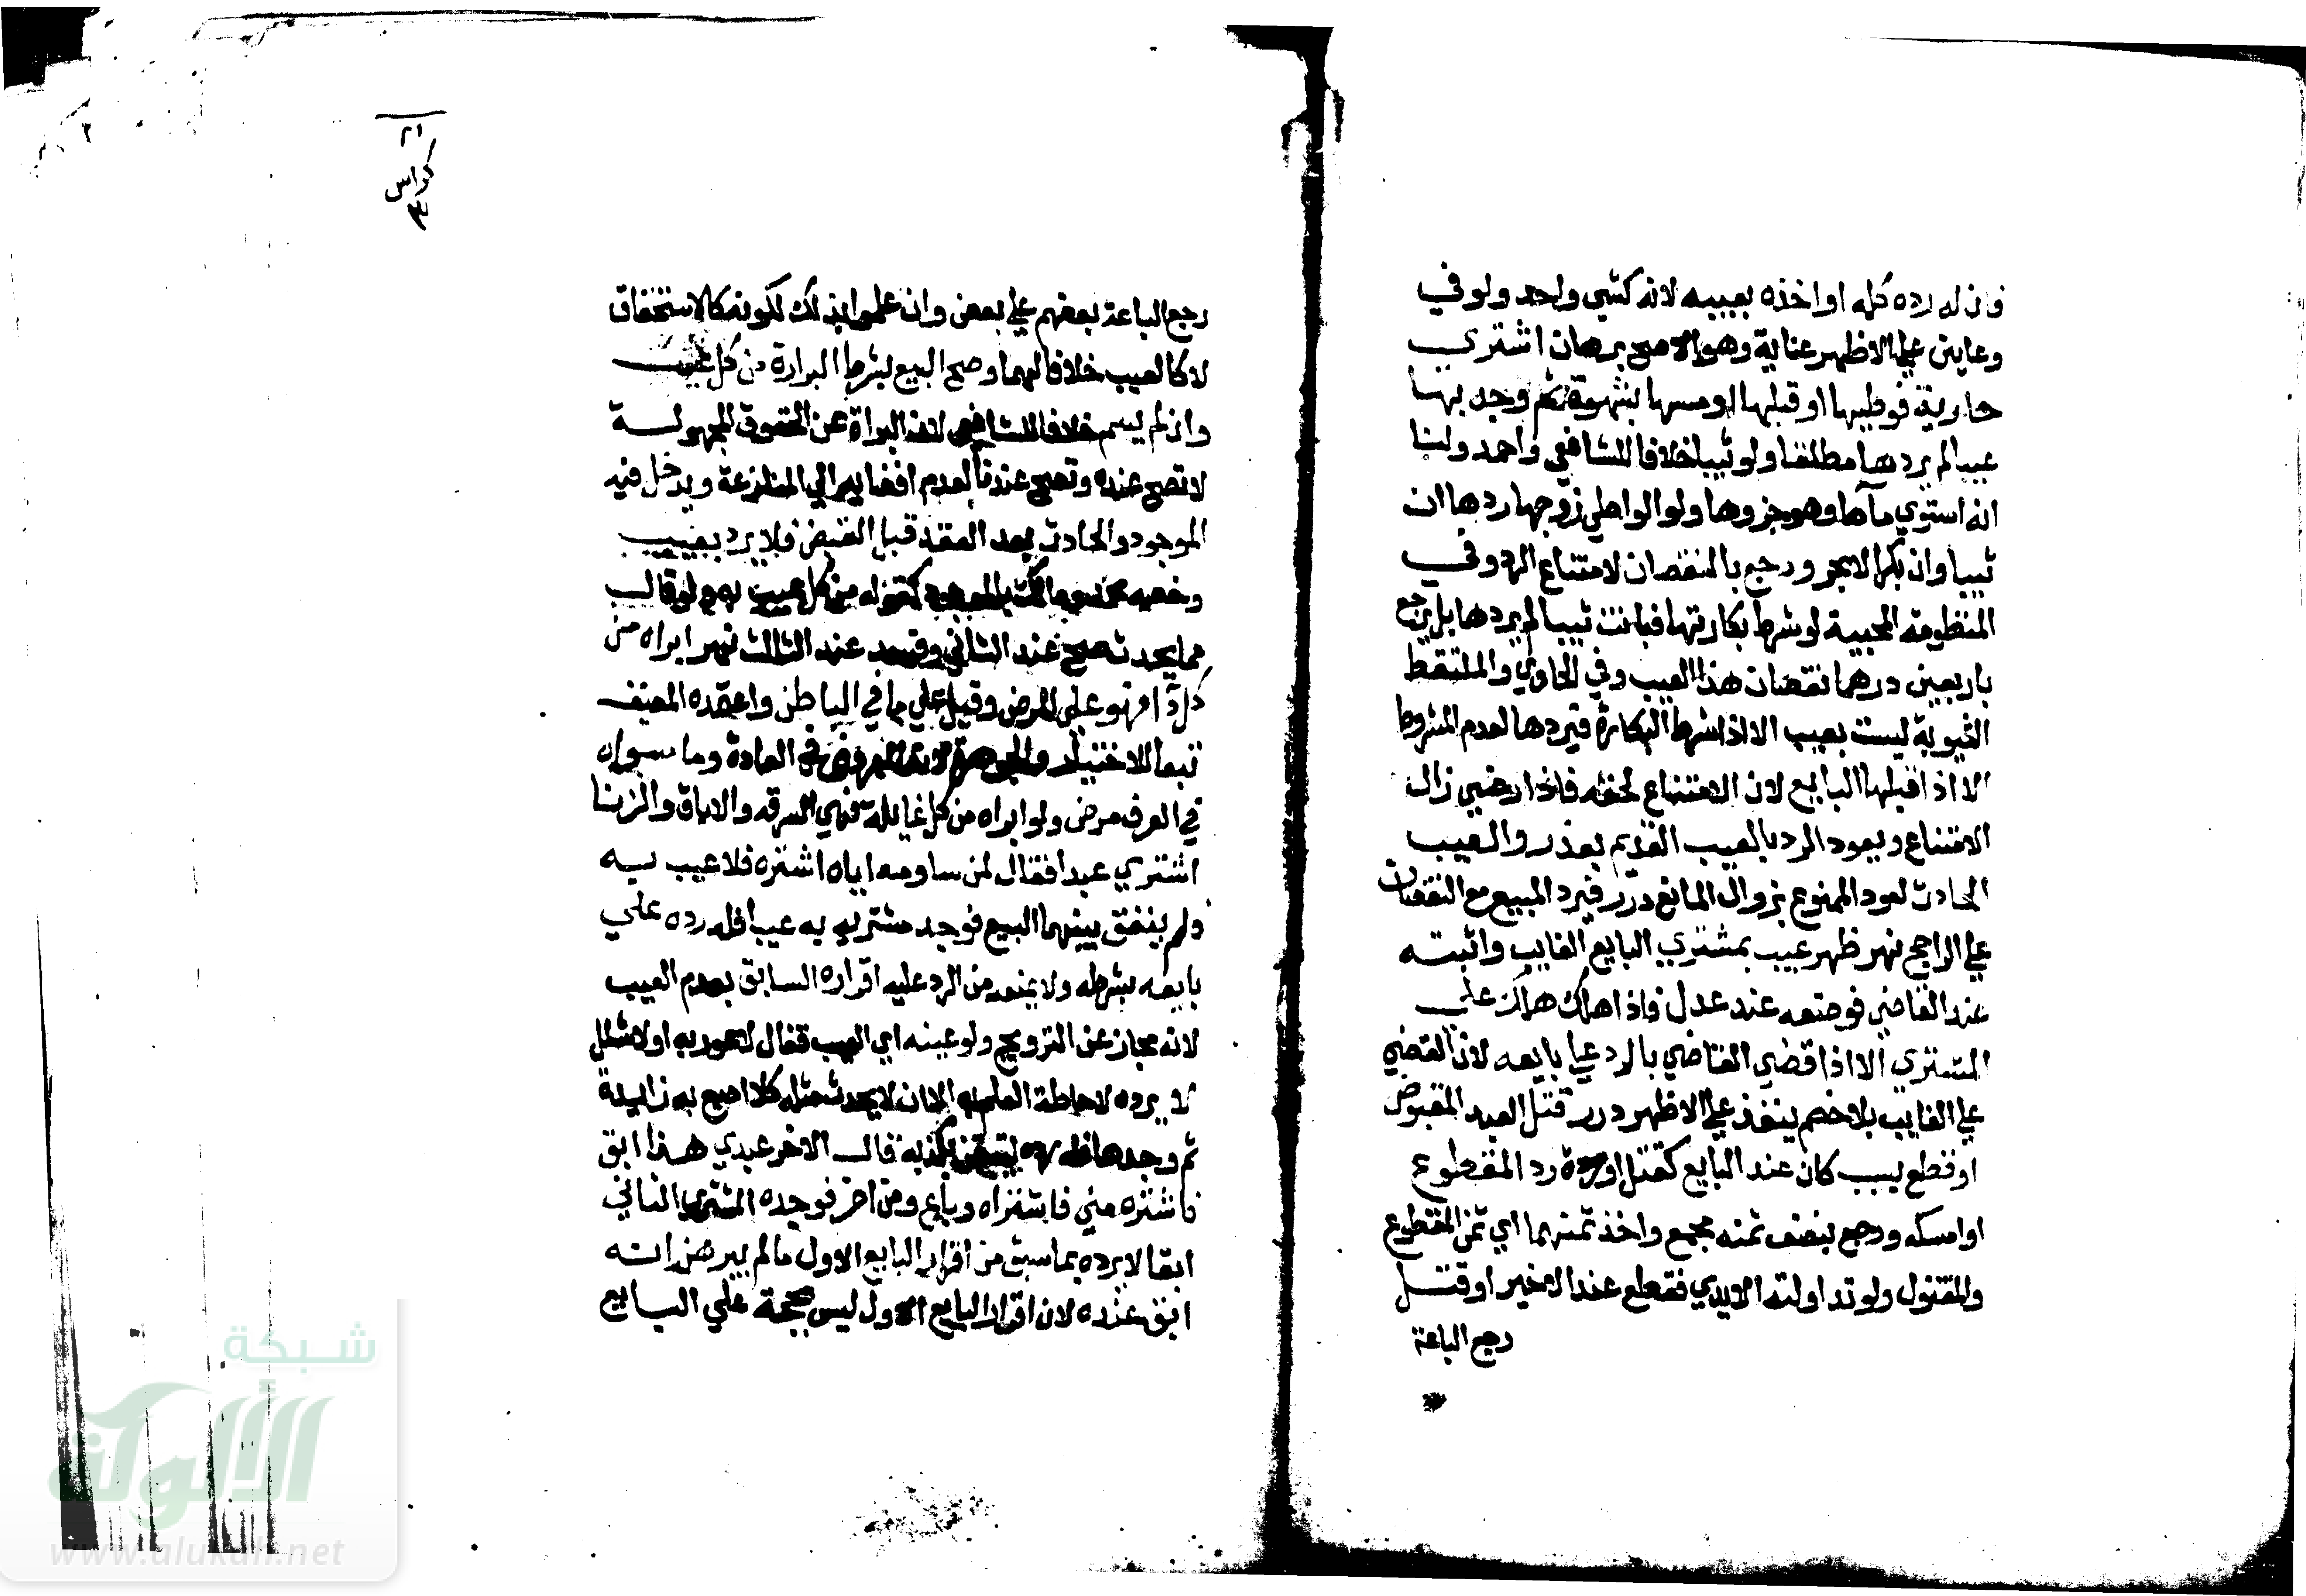 فان له رده كله او اخذه بعيبه لانه كشي واحد ولو في
وعاين علي الاظهر عناية وهو الاصح برهان اشتري
جارية فوطيها او قبلها او مسها بشهوة ثم وجد بها
عيبا لم يردها مطلقا ولو ثيبا خلافا للشافعي واحمد ولنا
انه استوي مآها وهو جزوها ولو الواطي زوجها ردها ان
ثيبا وان بكرا لا بحر ورجع بالنقصان لامتناع الرد وفي
المنظومة المحبية لو شرط بكارتها فبانت ثيبا لم يردها بل يرجع
باربعين درهما نقصان هذا العيب وفي الحاوي والملتقط
الثيوبة ليست بعيب الا اذا شرط البكارة فيردها لعدم المشروط
الا اذا قبلها البايع لان الامتناع لحقه فاذا رضي زال
الامتناع ويعود الرد بالعيب القديم بعد زوال العيب
الحادث لعود الممنوع بزوال المانع درر فيرد المبيع مع النقصان
علي الراجح نهر ظهر عيب بمشتري البايع الغايب واثبته
عند القاضي فوضعه عند عدل فاذا هلك هلك علي
المشتري الا اذا قضي القاضي بالرد علي بايعه لان القضي
علي الغايب بلا خصم ينفذ علي الاظهر درر قتل العبد المقبوض
او قطع بسبب كان عند البايع كقتل او ردة رد المقطوع
او امسكه ورجع بنصف ثمنه مجمع واخذ ثمنهما اي ثمن المقطوع
والمقتول ولو تداولته الايدي فقطع عند الاخير او قتل
رجع الباعة
٢١
كراس
٣
رجع الباعة بعضهم علي بعض وان علموا بذلك لكونه كالاستحقاق
لا كالعيب خلافا لهما وصح البيع بشرط البراءة من كل عيب
وان لم يسم خلافا للشافعي لان البراة عن الحقوق المجهولة
لا تصح عنده وتصح عندنا لعدم افضايه الي المنازعة ويدخل فيه
الموجود والحادث بعد العقد قبل القبض فلا يرد بعيب
وخصه مالك بالموجود كقوله من كل عيب به ولو قال
مما يحدث صح عند الثاني وفسد عند الثالث نهر ابراه من
كل دآ فهو علي المرض وقيل علي ما في الباطن واعتمده المصنف
تبعا للاختيار والجوهرة لانه المعروف في العادة وما سواه
في العرف مرض ولو ابراه من كل غايلة فهي السرقه والاباق والزنا
اشتري عبدا فقال لمن ساومه اياه اشتره فلا عيب به
ولم يتفق بينهما البيع فوجد مشتريه به عيبا فله رده علي
بايعه بشرطه ولا يمنعه من الرد عليه اقراره السابق بعدم العيب
لانه مجاز عن الترويج ولو عينه اي العيب فقال لا عور به او لا شلل
لا يرده لاحاطة العلم به الا ان لا يحدث مثله كلا اصبع به زايدة
ثم وجدها فله رده لتيقن بكذبه قال الاخر عبدي هذا ابق
فاشتره مني فاشتراه وباع من اخر فوجده المشتري الثاني
ابقا لا يرده بما سبق من اقرار البايع الاول ما لم يبرهن انه
ابق عنده لان اقرار البايع الاول ليس بحجة علي البايع
شبكة
الألوكة
www.alukah.net